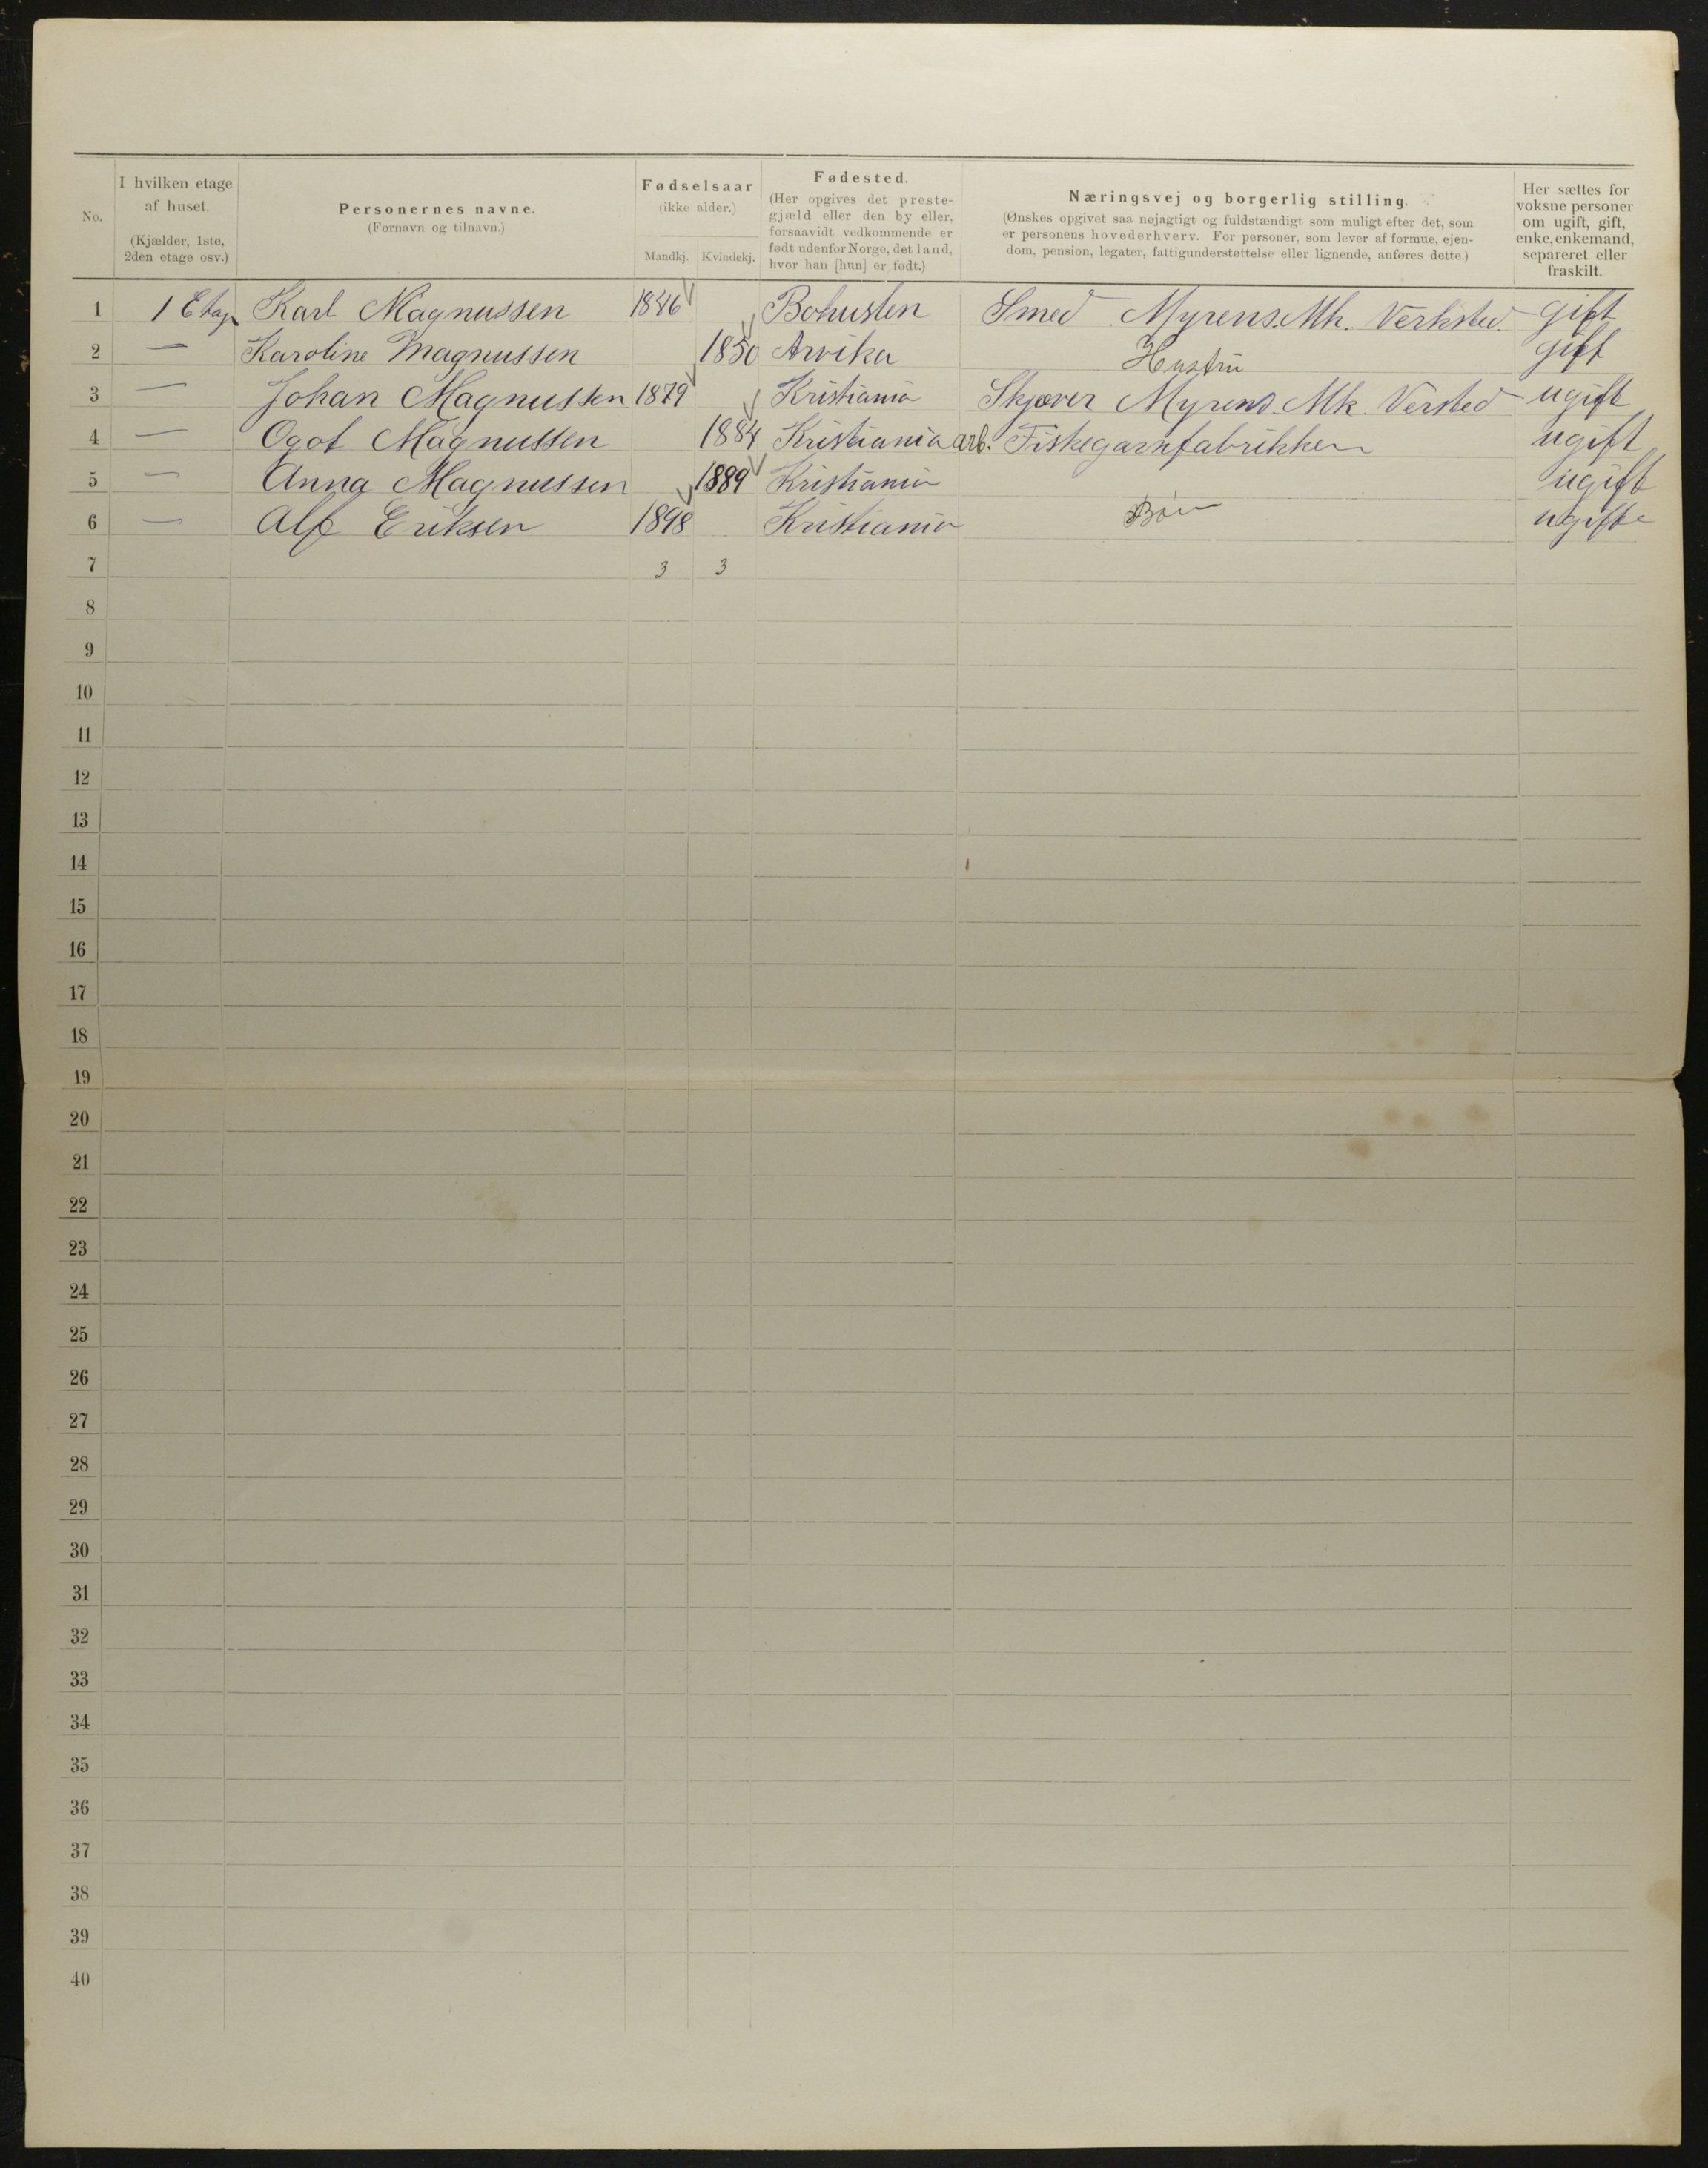 No.
I hvilken etage af huset. (Kjælder, 1ste, 2den etage osv.)
Personernes navne. (Fornavn og tilnavn.)
Fødselsaar (ikke alder.) Mandkj. Kvindekj.
Fødested. (Her opgives det prestegjæld eller den by eller, forsaavidt vedkommende er født udenfor Norge, det land, hvor han [hun] er født.)
Næringsvej og borgerlig stilling. (Ønskes opgivet saa nøjagtigt og fuldstændigt som muligt efter det, som er personens hovederhverv. For personer, som lever af formue, ejendom, pension, legater, fattigunderstøttelse eller lignende, anføres dette.)
Her sættes for voksne personer om ugift, gift, enke, enkemand, separeret eller fraskilt.
1 1 Etag Karl Magnussen 1846 Bohuslen Smed Myrens. Mk. Verksted. gift
2 — Karoline Magnussen 1850 Arvika Hustru gift
3 — Johan Magnussen 1879 Kristiania Skjæver Myrens Mk. Versted ugift
4 — Ogot Magnussen 1884 Kristiania arb. Fiskegarnfabrikken ugift
5 — Anna Magnussen 1889 Kristiania ugift
6 — Alf Eriksen 1898 Kristiania ugift
7 3 3
8
9
10
11
12
13
14
15
16
17
18
19
20
21
22
23
24
25
26
27
28
29
30
31
32
33
34
35
36
37
38
39
40